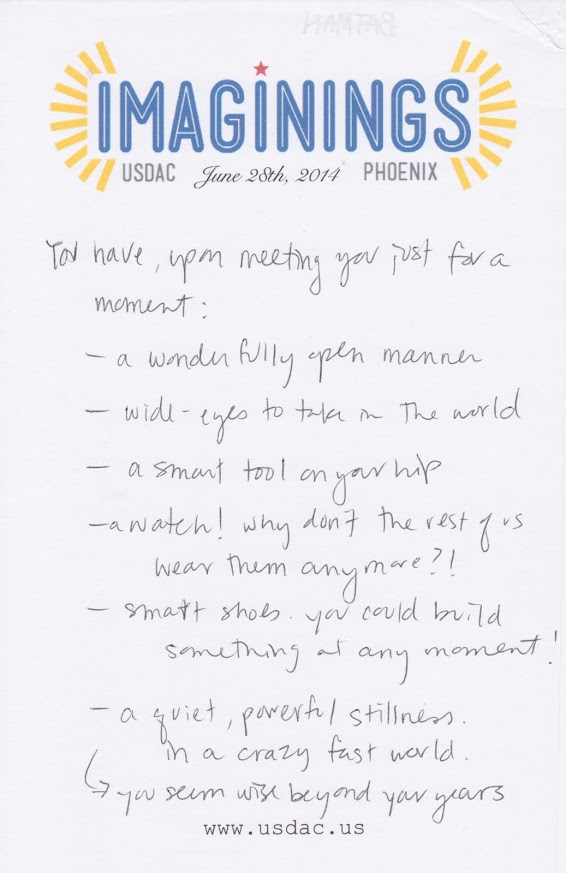 BATMAN
IMAGININGS
USDAC June 28th, 2014 PHOENIX
You have, upon meeting you just for a
moment:
- a wonderfully open manner
- wide-eyes to take in The world
- a smart tool on your hip
- a watch! why don't the rest of us
wear them anymore?!
- smart shoes. you could build
something at any moment!
- a quiet, powerful stillness.
in a crazy fast world.
↳ you seem wise beyond your years
www.usdac.us